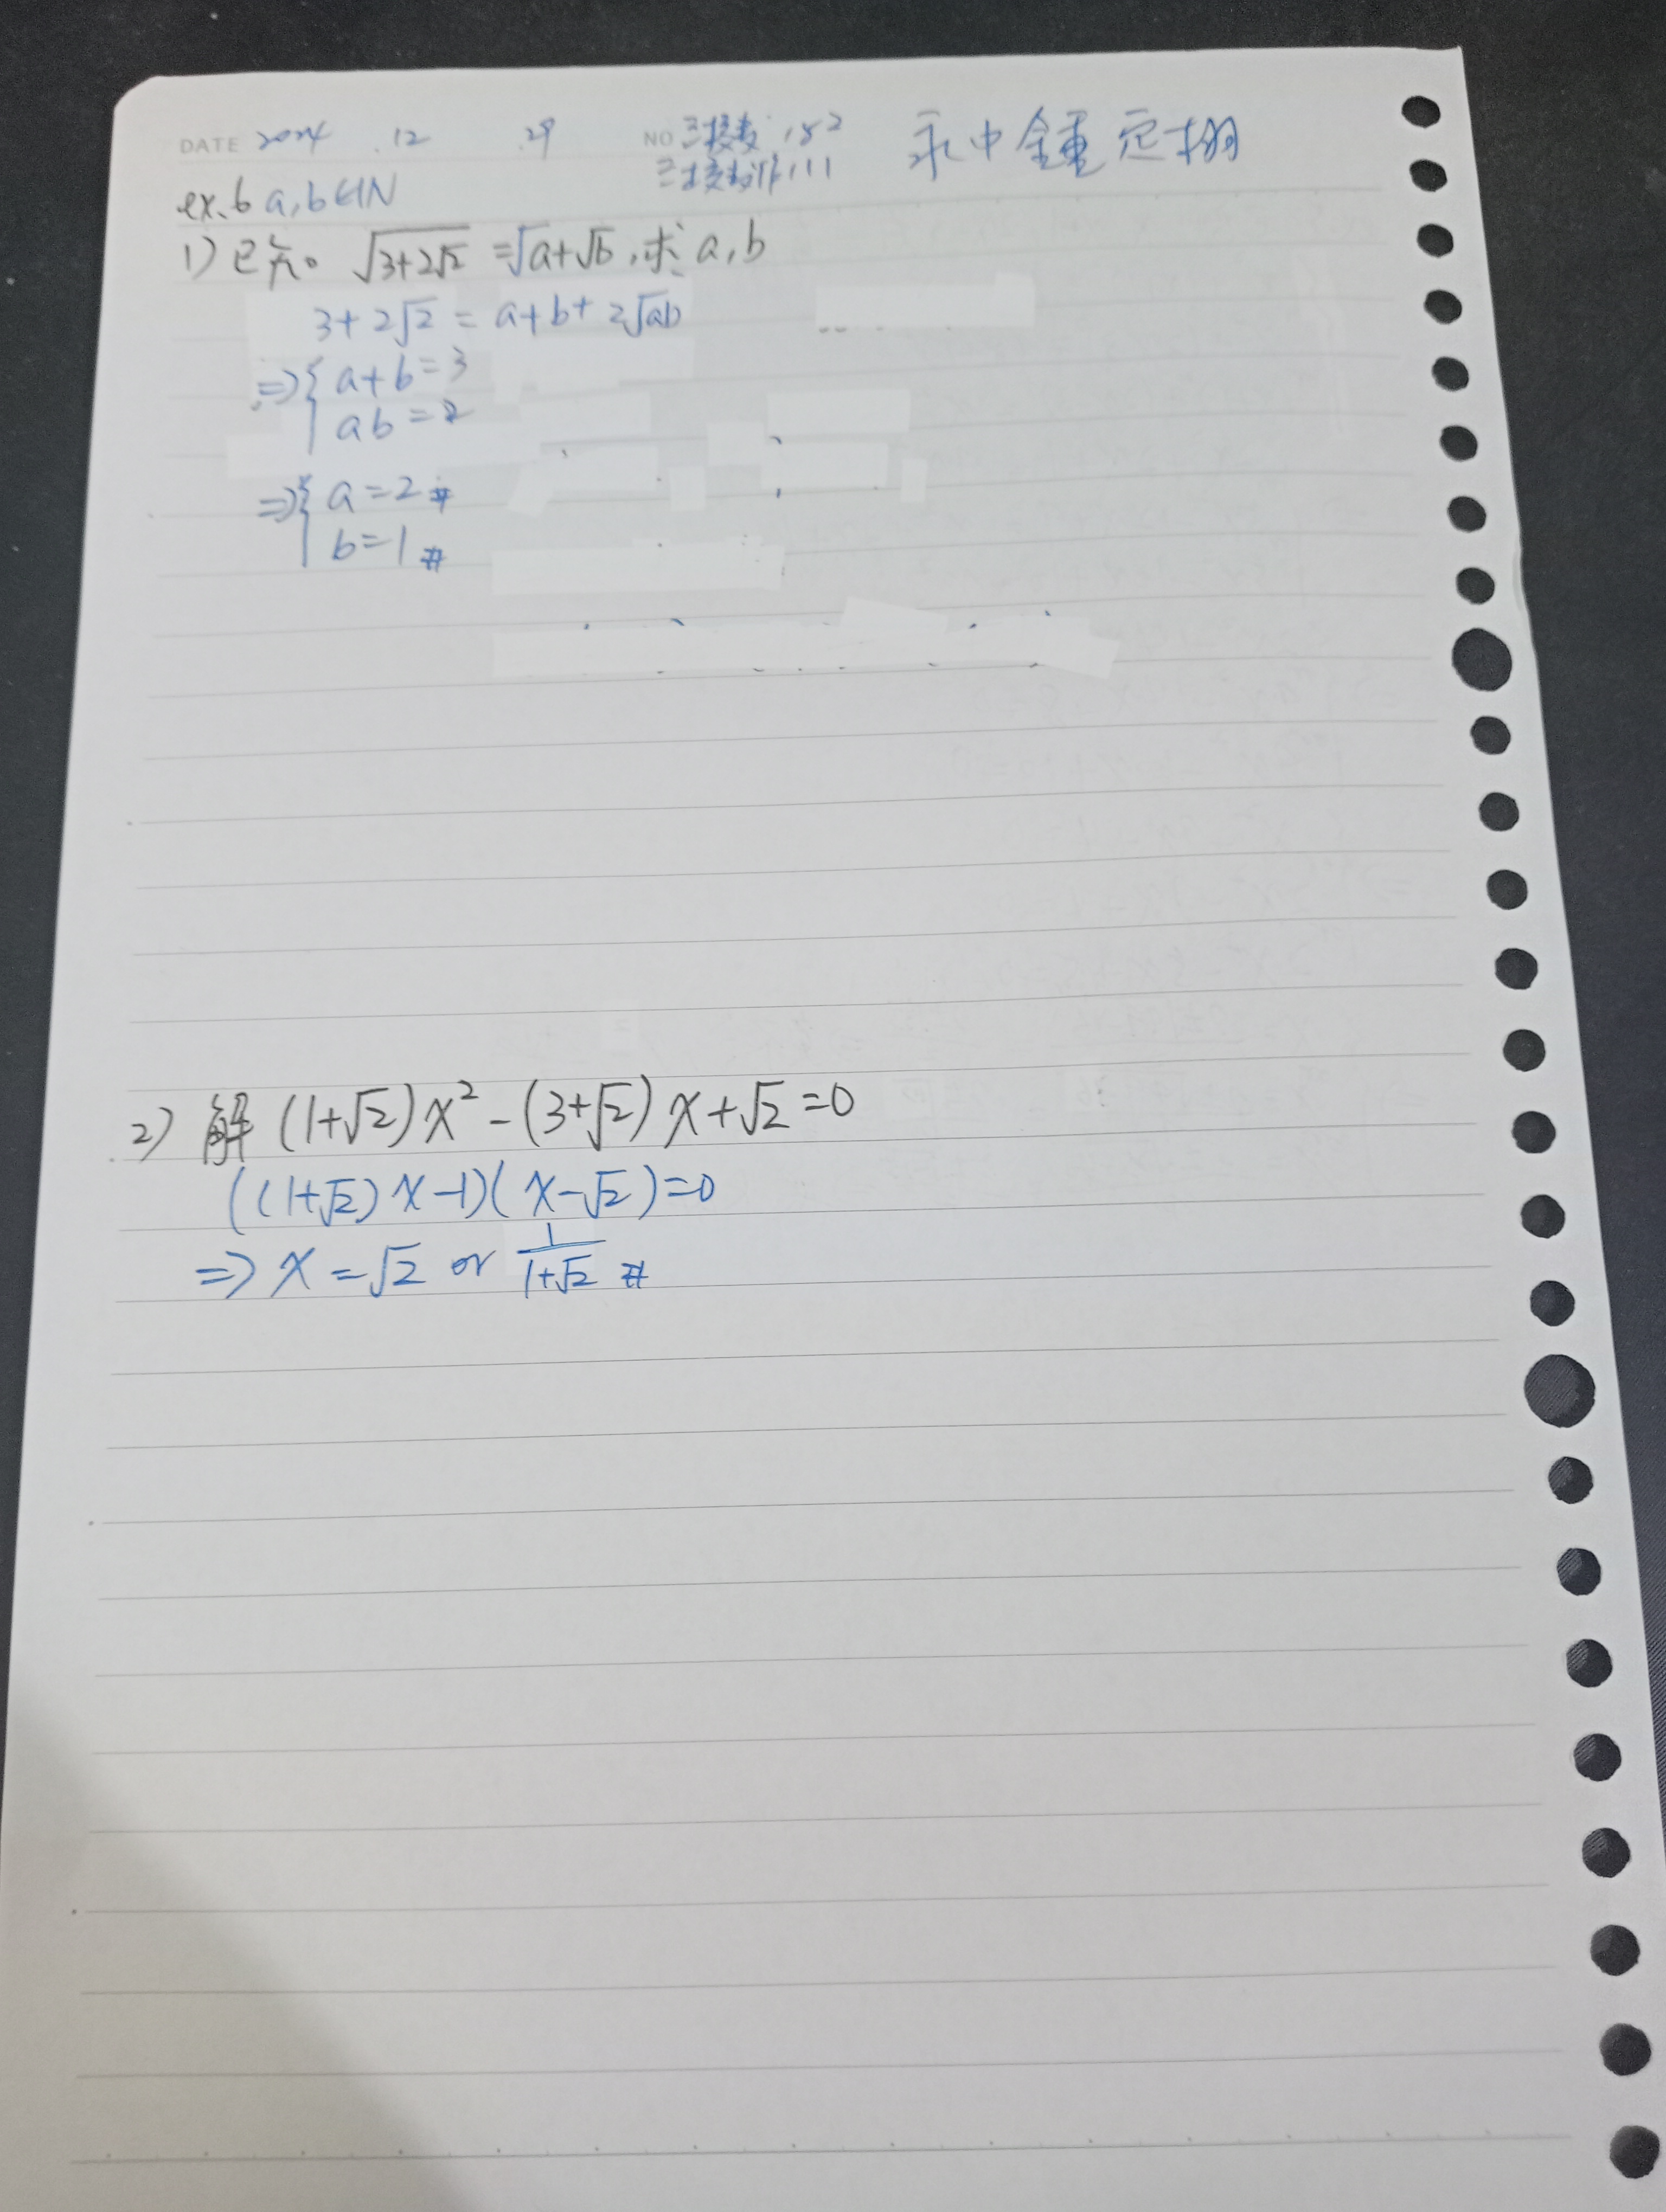 DATE 2024 .12 .29 NO 永中 鍾定栩
ex.6 a,b∈IN
1) 已知 √(3+2√2) =√a+√b ,求 a,b
3+2√2 = a+b+2√ab
⇒{ a+b=3
ab=2
⇒{ a=2 #
b=1 #
2) 解 (1+√2)x²-(3+√2)x+√2=0
((1+√2)x-1)(x-√2)=0
⇒ x=√2 or 1/(1+√2) #